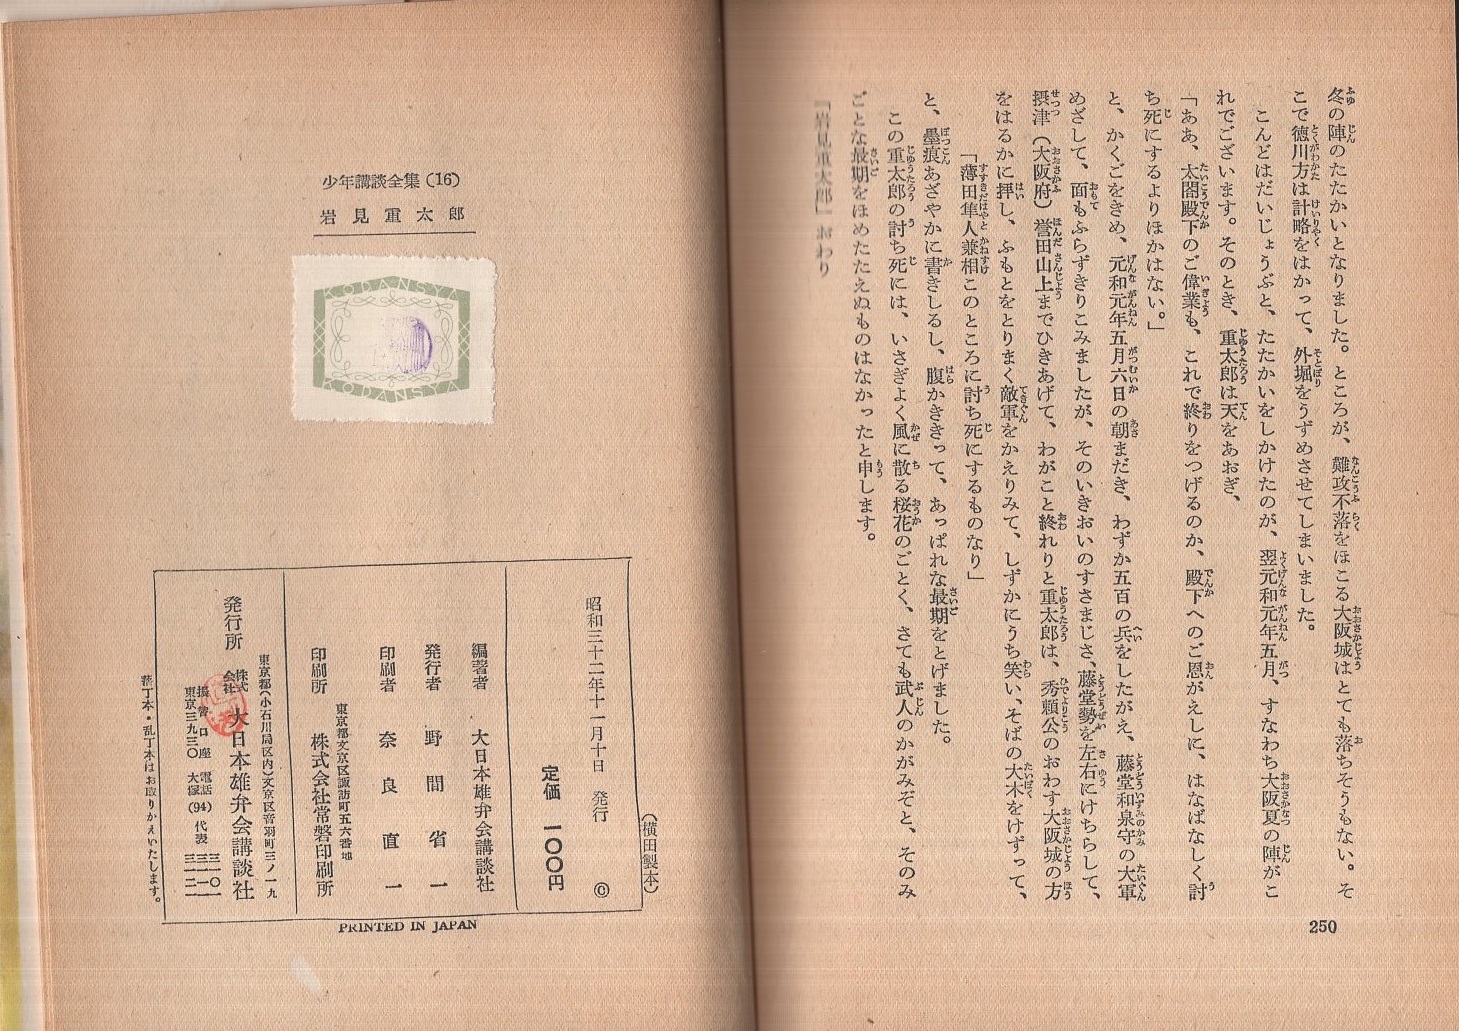 冬の陣のたたかいとなりました。ところが、難攻不落をほこる大阪城はとても落ちそうもない。そ
こで徳川方は計略をはかって、外堀をうずめさせてしまいました。
こんどはだいじょうぶと、たたかいをしかけたのが、翌元和元年五月、すなわち大阪夏の陣がこ
れでございます。そのとき、重太郎は天をあおぎ、
「ああ、太閤殿下のご偉業も、これで終りをつげるのか、殿下へのご恩がえしに、はなばなしく討
ち死にするよりほかはない。」
と、かくごをきめ、元和元年五月六日の朝まだき、わずか五百の兵をしたがえ、藤堂和泉守の大軍
めざして、面もふらずきりこみましたが、そのいきおいのすさまじさ、藤堂勢を左右にけちらして、
摂津(大阪府)誉田山上までひきあげて、わがこと終れりと重太郎は、秀頼公のおわす大阪城の方
をはるかに拝し、ふもとをとりまく敵軍をかえりみて、しずかにうち笑い、そばの大木をけずって、
「薄田隼人兼相このところに討ち死にするものなり」
と、墨痕あざやかに書きしるし、腹かききって、あっぱれな最期をとげました。
この重太郎の討ち死には、いさぎよく風に散る桜花のごとく、さても武人のかがみぞと、そのみ
ごとな最期をほめたたえぬものはなかったと申します。
「岩見重太郎」おわり
250
少年講談全集(16)
岩見重太郎
KODANSYA
KODANSYA
(横田製本)
昭和三十二年十一月十日 発行 ©
定価 一〇〇円
編著者 大日本雄弁会講談社
発行者 野間省一
印刷者 奈良直一
東京都文京区諏訪町五六番地
印刷所 株式会社常磐印刷所
東京都(小石川局区内)文京区音羽町三ノ一九
発行所 株式会社 大日本雄弁会講談社
振替口座 東京三九三〇 電話 大塚(94)代表
落丁本・乱丁本はお取りかえいたします。
PRINTED IN JAPAN